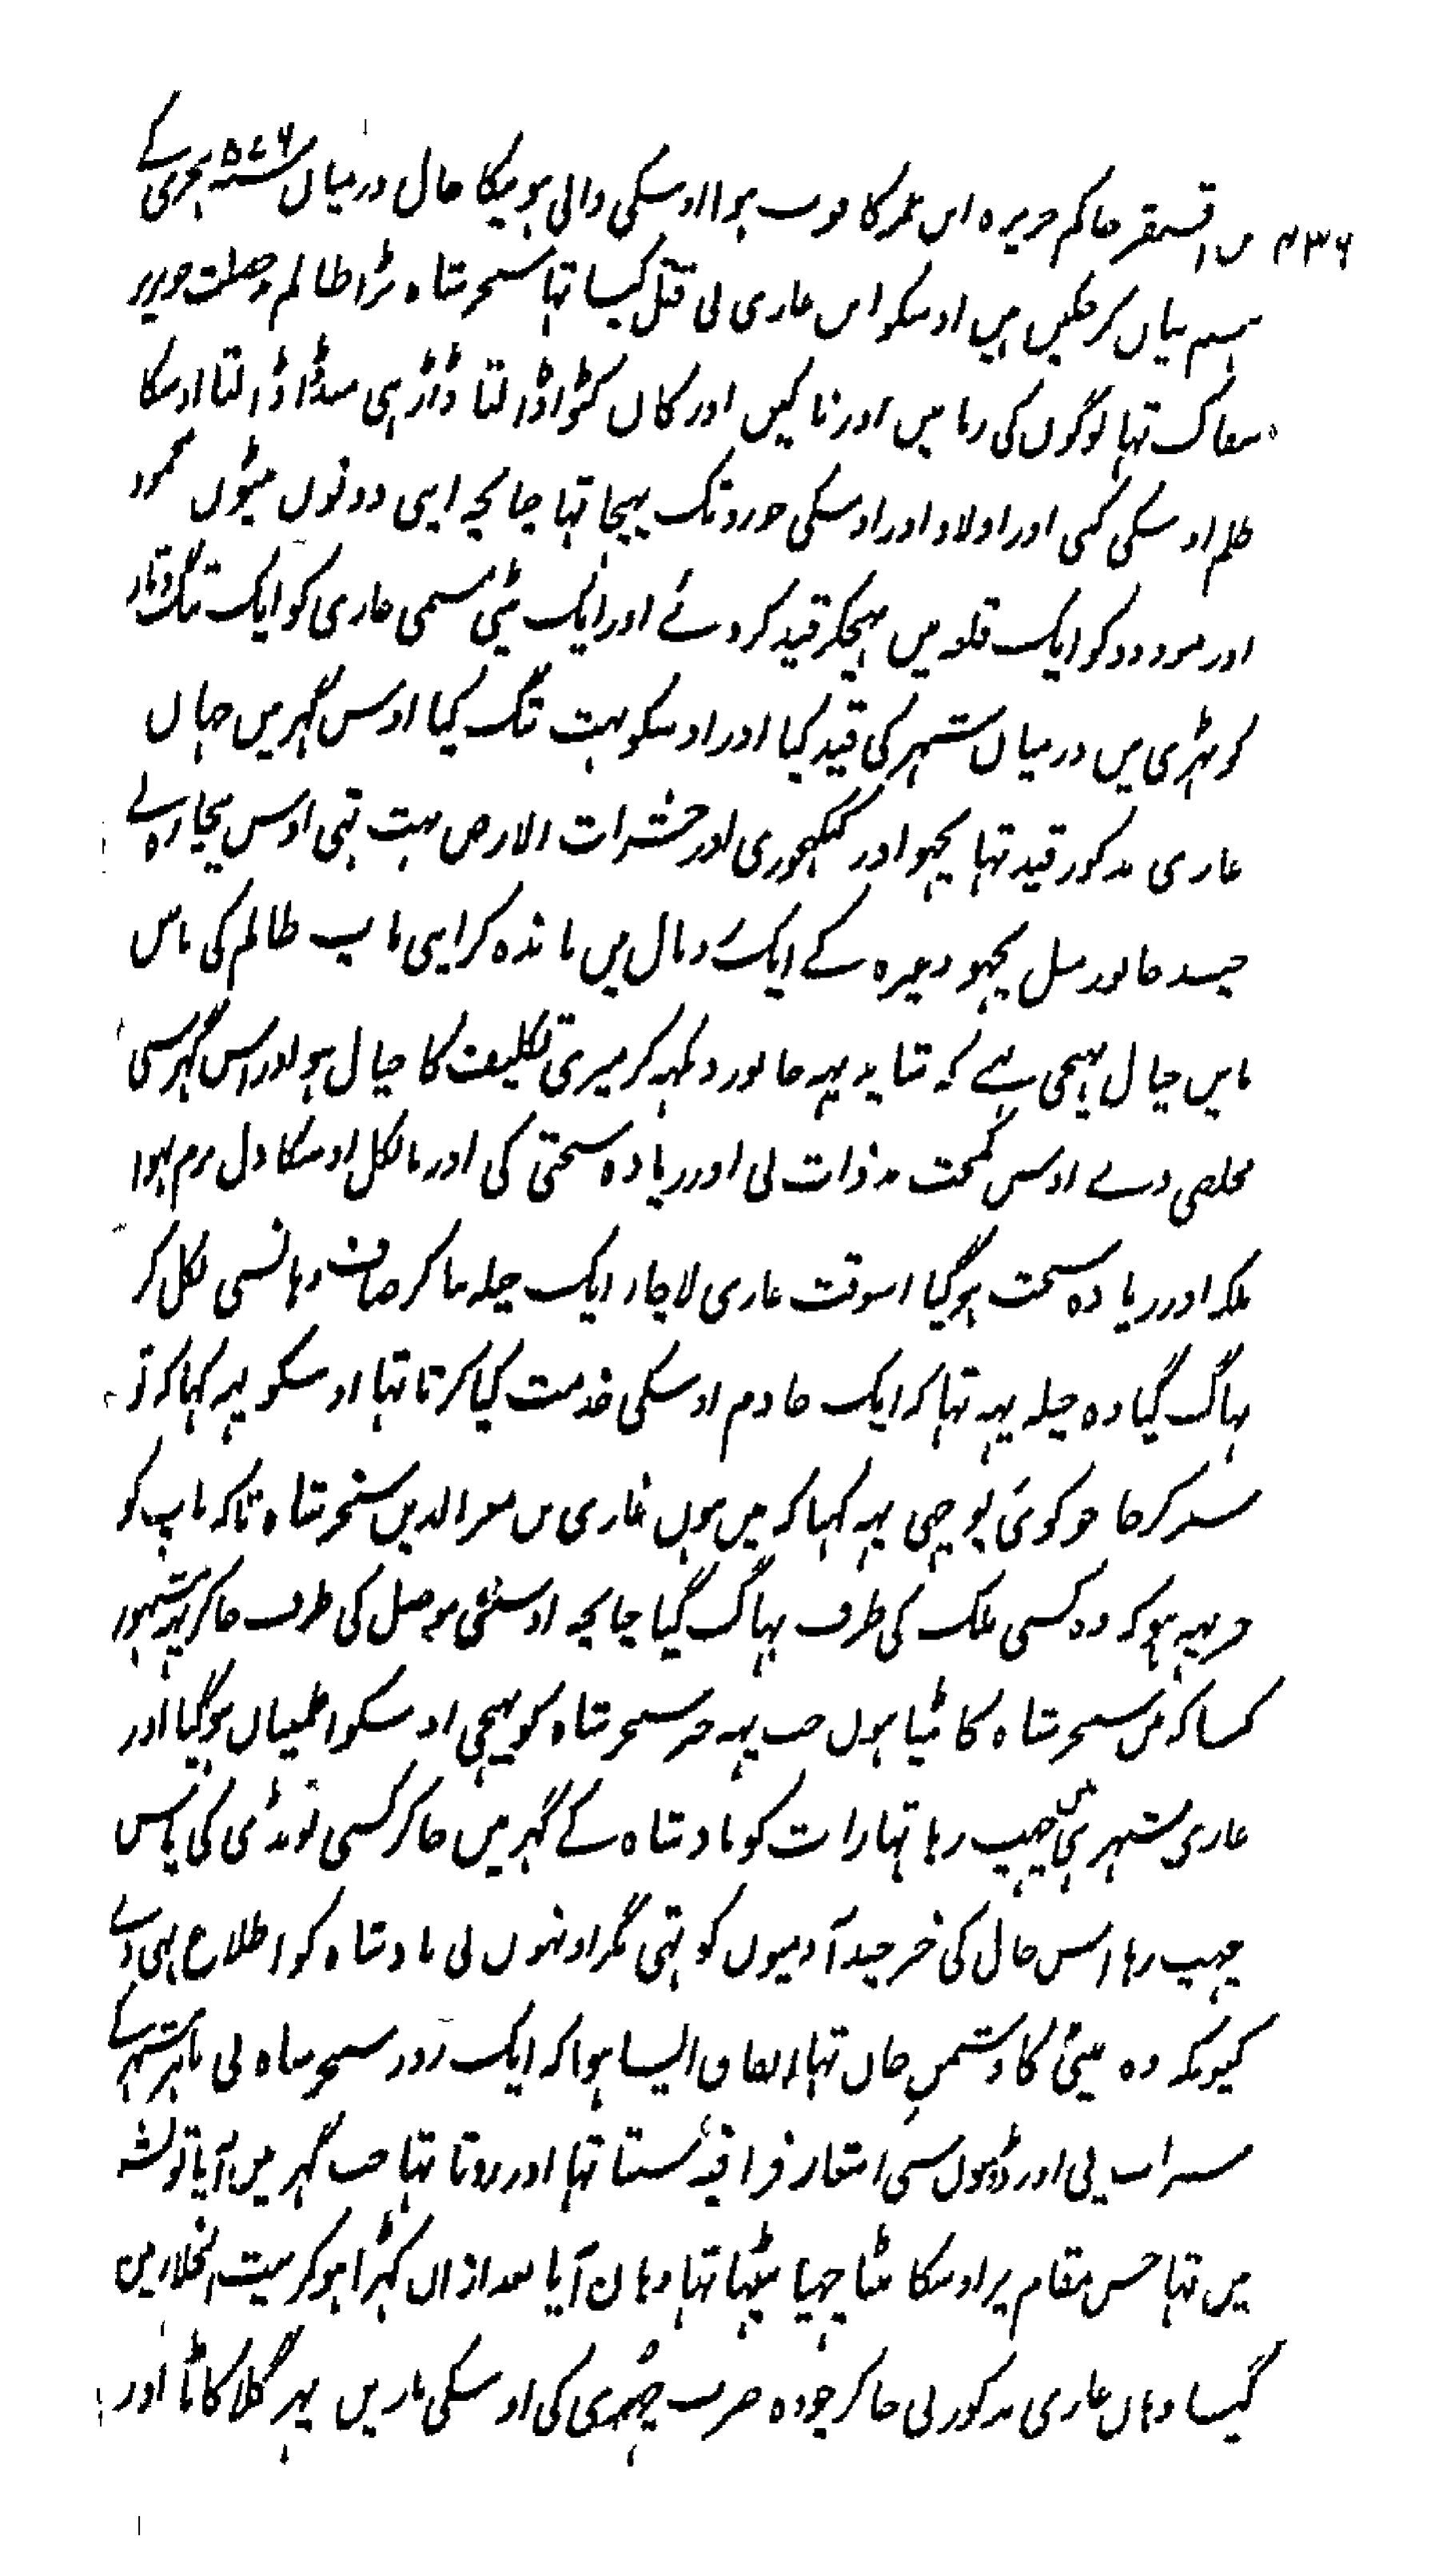 ۴۳۶ بن اقسنقر حاکم جزیرہ ابن عمر کا فوت ہوا اوسکی والی ہونیکا حال درمیان سنہ ۵۷۶ ہجری کے
ہم بیان کر چکیں ہیں اوسکو اس غازی نی قتل کیا تہا سنجر شاہ بڑا ظالم
سفاک تہا لوگوں کی زبانیں اور ناکیں اور کان کٹوا ڈالتا ڈاڑہی منڈا ڈالتا اوسکا
ظلم اوسکی اور اولاد اور اوسکی جورو تک پہنچا تہا چنانچہ اپنی دونوں بیٹوں محمود
اور مودود کو ایک قلعہ میں بہیجکر قید کر دئے اور ایک بیٹی مسمی غازی کو ایک تنگ و تار
کوٹہڑی میں درمیان شہر کی قید کیا اور اوسکو بہت تنگ کیا اوس گہر میں جہاں
غازی مذکور قید تہا بچہو اور کنکہجوری اور حشرات الارض بہت تہی اوس بیچارہ نے
چند جانور مثل بچہو وغیرہ کے ایک رومال میں باندہ کر اپنی باپ ظالم کی پاس
بایں خیال بہیجی ہے کہ شاید یہہ جانور دیکہہ کر میری تکلیف کا خیال ہو اور اس گہر سی
مخلصی دے اوس کمبخت بدذات نی اور زیادہ سختی کی اور بالکل اوسکا دل نرم نہوا
بلکہ اور زیادہ سخت ہو گیا اسوقت غازی لاچار ایک حیلہ بنا کر صاف وہانسی نکل کر
بہاگ گیا وہ حیلہ یہہ تہا کہ ایک خادم اوسکی خدمت کیا کرتا تہا اوسکو یہہ کہا کہ تو
سفر کر جا جو کوئی پوچہی یہہ کہنا کہ میں ہوں غازی بن معز الدین سنجر شاہ تاکہ باپ کو
خبر یہہ ہو کہ وہ کسی ملک کی طرف بہاگ گیا چنانچہ اوسنی موصل کی طرف جا کر یہہ مشہور
کیا کہ میں سنجر شاہ کا بیٹا ہوں جب یہہ خبر سنجر شاہ کو پہنچی اوسکو اطمینان ہو گیا اور
غازی شہر ہی میں چہپ رہا تہا رات کو بادشاہ کے گہر میں جا کر کسی لونڈی کی پاس
چہپ رہا اس حال کی خبر چند آدمیوں کو تہی مگر اونہوں نی بادشاہ کو اطلاع نہی دے
کیونکہ وہ بیٹی کا دشمن جان تہا اتفاق ایسا ہوا کہ ایک روز سنجر شاہ نی باہر شہر کے
شراب پی اور ڈوموں سی اشعار فراقیہ سنتا تہا اور روتا تہا جب گہر میں آیا تو نشہ
میں تہا جس مقام پر اوسکا بیٹا چہپا بیٹہا تہا وہان آیا بعد ازاں کہڑا ہو کر بیت الخلا میں
گیا وہاں غازی مذکور نی جا کر چودہ ضرب چہری کی اوسکی ماریں پہر گلا کاٹا اور